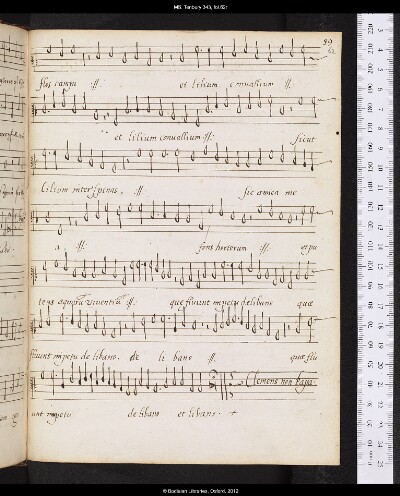 MS. Tenbury 343, fol.62r
62
flos campi :||: et lilium convallium :||:
et lilium convallium :||: sicut
lilium inter spinas, :||: sic amica me
a :||: fons hortorum :||: et pu
teus aquarum viventium :||: quæ fluunt impetu de libano quæ
fluunt impetu de libano. de li bano :||: quæ flu
Clemens non Papa
unt impetu de libano et libano.
© Bodleian Libraries, Oxford, 2012